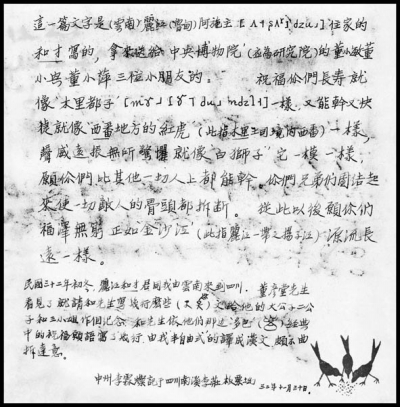 這一篇文字是(雲南)麗江(魯甸)阿施主 住家的
和才寫的,拿來送給'中央博物院'(中央研究院)的董小敏董
小與董小萍三位小朋友的。 祝福你們長壽就
像'木里都子' 一樣,又能幹又快
捷就像'西番地方的紅虎'(此指木里王國境內西番)一樣,
聲威遠振無所驚懼就像'白獅子'它一模一樣,
願你們比其他一切人上都能幹。你們兄弟們團结起
來使一切敵人的骨頭都拆斷。 從此以後願你們
福澤無窮正如'金沙江'(此指麗江一帶之揚子江)源流長
遠一樣。
民國三十二年初冬,麗江和才君同我由雲南來到四川, 董彥堂先生
看見了就請和先生寫幾行麽些 文給他的大公子二公
子和三小姐作個紀念 和先生依他們那边'多巴' 經典
中的祝福頌語寫了幾行,由我半自由式的譯成漢文,頗不曲
折達意。
中州李霖燦記于四川南溪李莊板栗坳 三二年十一月三十日。